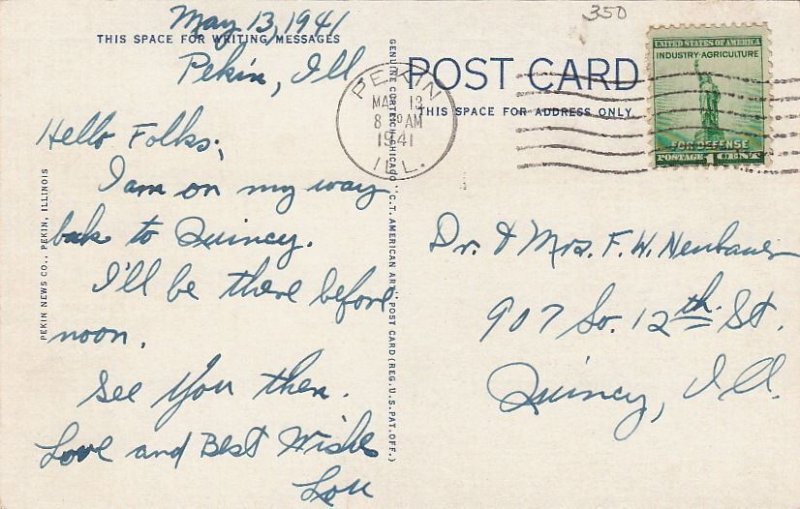 May 13, 1941
THIS SPACE FOR WRITING MESSAGES
Pekin, Ill
Hello Folks;
I am on my way
back to Quincy.
I'll be there before
noon.
See You then.
Love and Best Wishes
Lou
PEKIN NEWS CO., PEKIN, ILLINOIS
GENUINE CURTEICH-CHICAGO "C.T. AMERICAN ART" POST CARD (REG. U.S. PAT. OFF.)
350
POST CARD
THIS SPACE FOR ADDRESS ONLY.
PEKIN
MAY 13
8 AM
1941
ILL.
UNITED STATES OF AMERICA
INDUSTRY-AGRICULTURE
FOR DEFENSE
POSTAGE 1 CENT
Dr. & Mrs. F. W. Neubauer
907 So. 12th St.
Quincy, Ill.